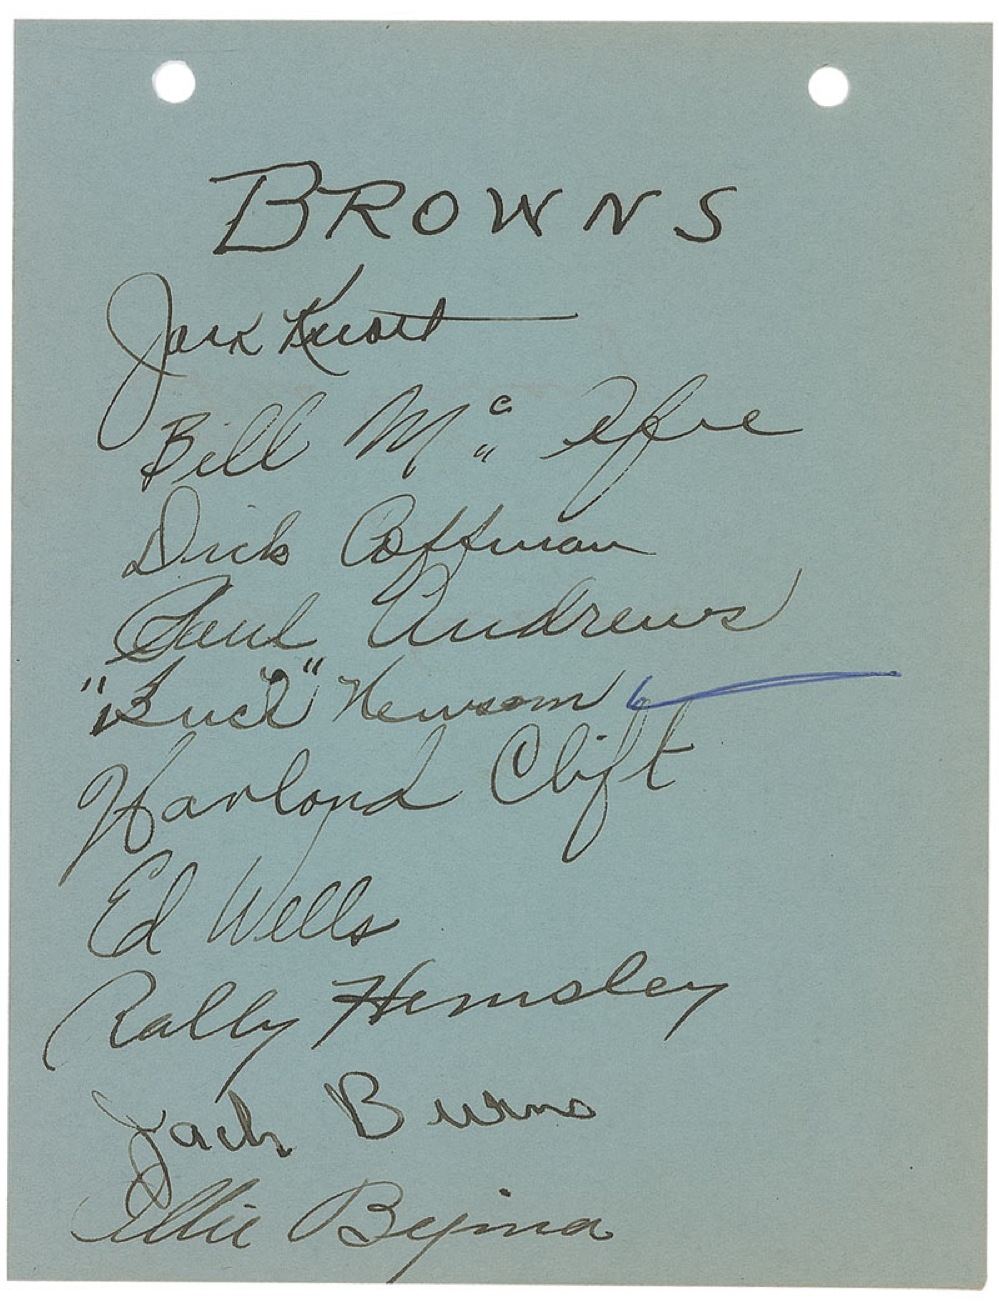 BROWNS
Jack Knott
Bill Mc Afee
Dick Coffman
Paul Andrews
"Buck" Newsom
Harlond Clift
Ed Wells
Rolly Hemsley
Jack Burns
Ollie Bejma